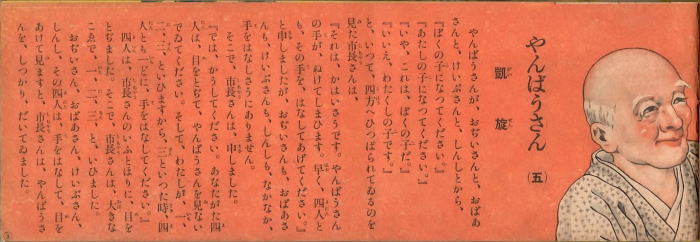 やんばうさん (五)
凱旋
やんばうさんが、おぢいさんと、おばあ
さんと、けいぶさんと、しんしとから、
『ぼくの子になつてください。』
『あたしの子になつてください。』
『いや、これは、ぼくの子だ。』
『いいえ、わたくしの子です。』
と、いつて、四方へひつぱられてゐるのを
見た市長さんは、
『それは、かはいさうです。やんばうさん
の手が、ぬけてしまひます。早く、四人と
も、その手を、はなしてあげてください。』
と申しましたが、おぢいさんも、おばあさ
んも、けいぶさんも、しんしも、なかなか、
手をはなしさうにありません。
そこで、市長さんは、申しました。
『では、かうしてください。あなたがた四
人は、目をとぢて、やんばうさんを見ない
でゐてください。そして、わたしが、一、
二、三、といひますから、三といつた時、四
人とも一どに、手をはなしてください。』
四人は、市長さんのいふとほりに、目を
とぢました。そこで、市長さんは、大きな
こゑで、一、二、三、と、いひました。
おぢいさん、おばあさん、けいぶさん、
しんし、その四人は、手をはなして、目を
あけて見ますと、市長さんは、やんばうさ
んを、しつかり、だいてゐました。